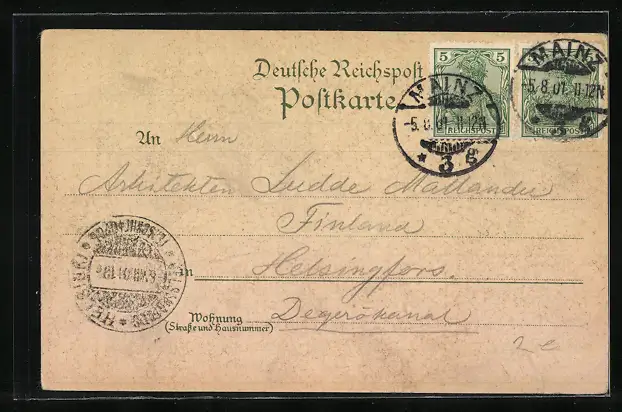 Deutsche Reichspost
Postkarte
5 5
REICHSPOST
REICHSPOST
MAINZ
-5.8.01.11-12N
* 3 g
MAINZ
-5.8.01.11-12N
An Herrn
Arkitekten Ludde
Finland
in Helsingfors.
HELSINKI
Wohnung
(Straße und Hausnummer)
Degerökanal
2 e